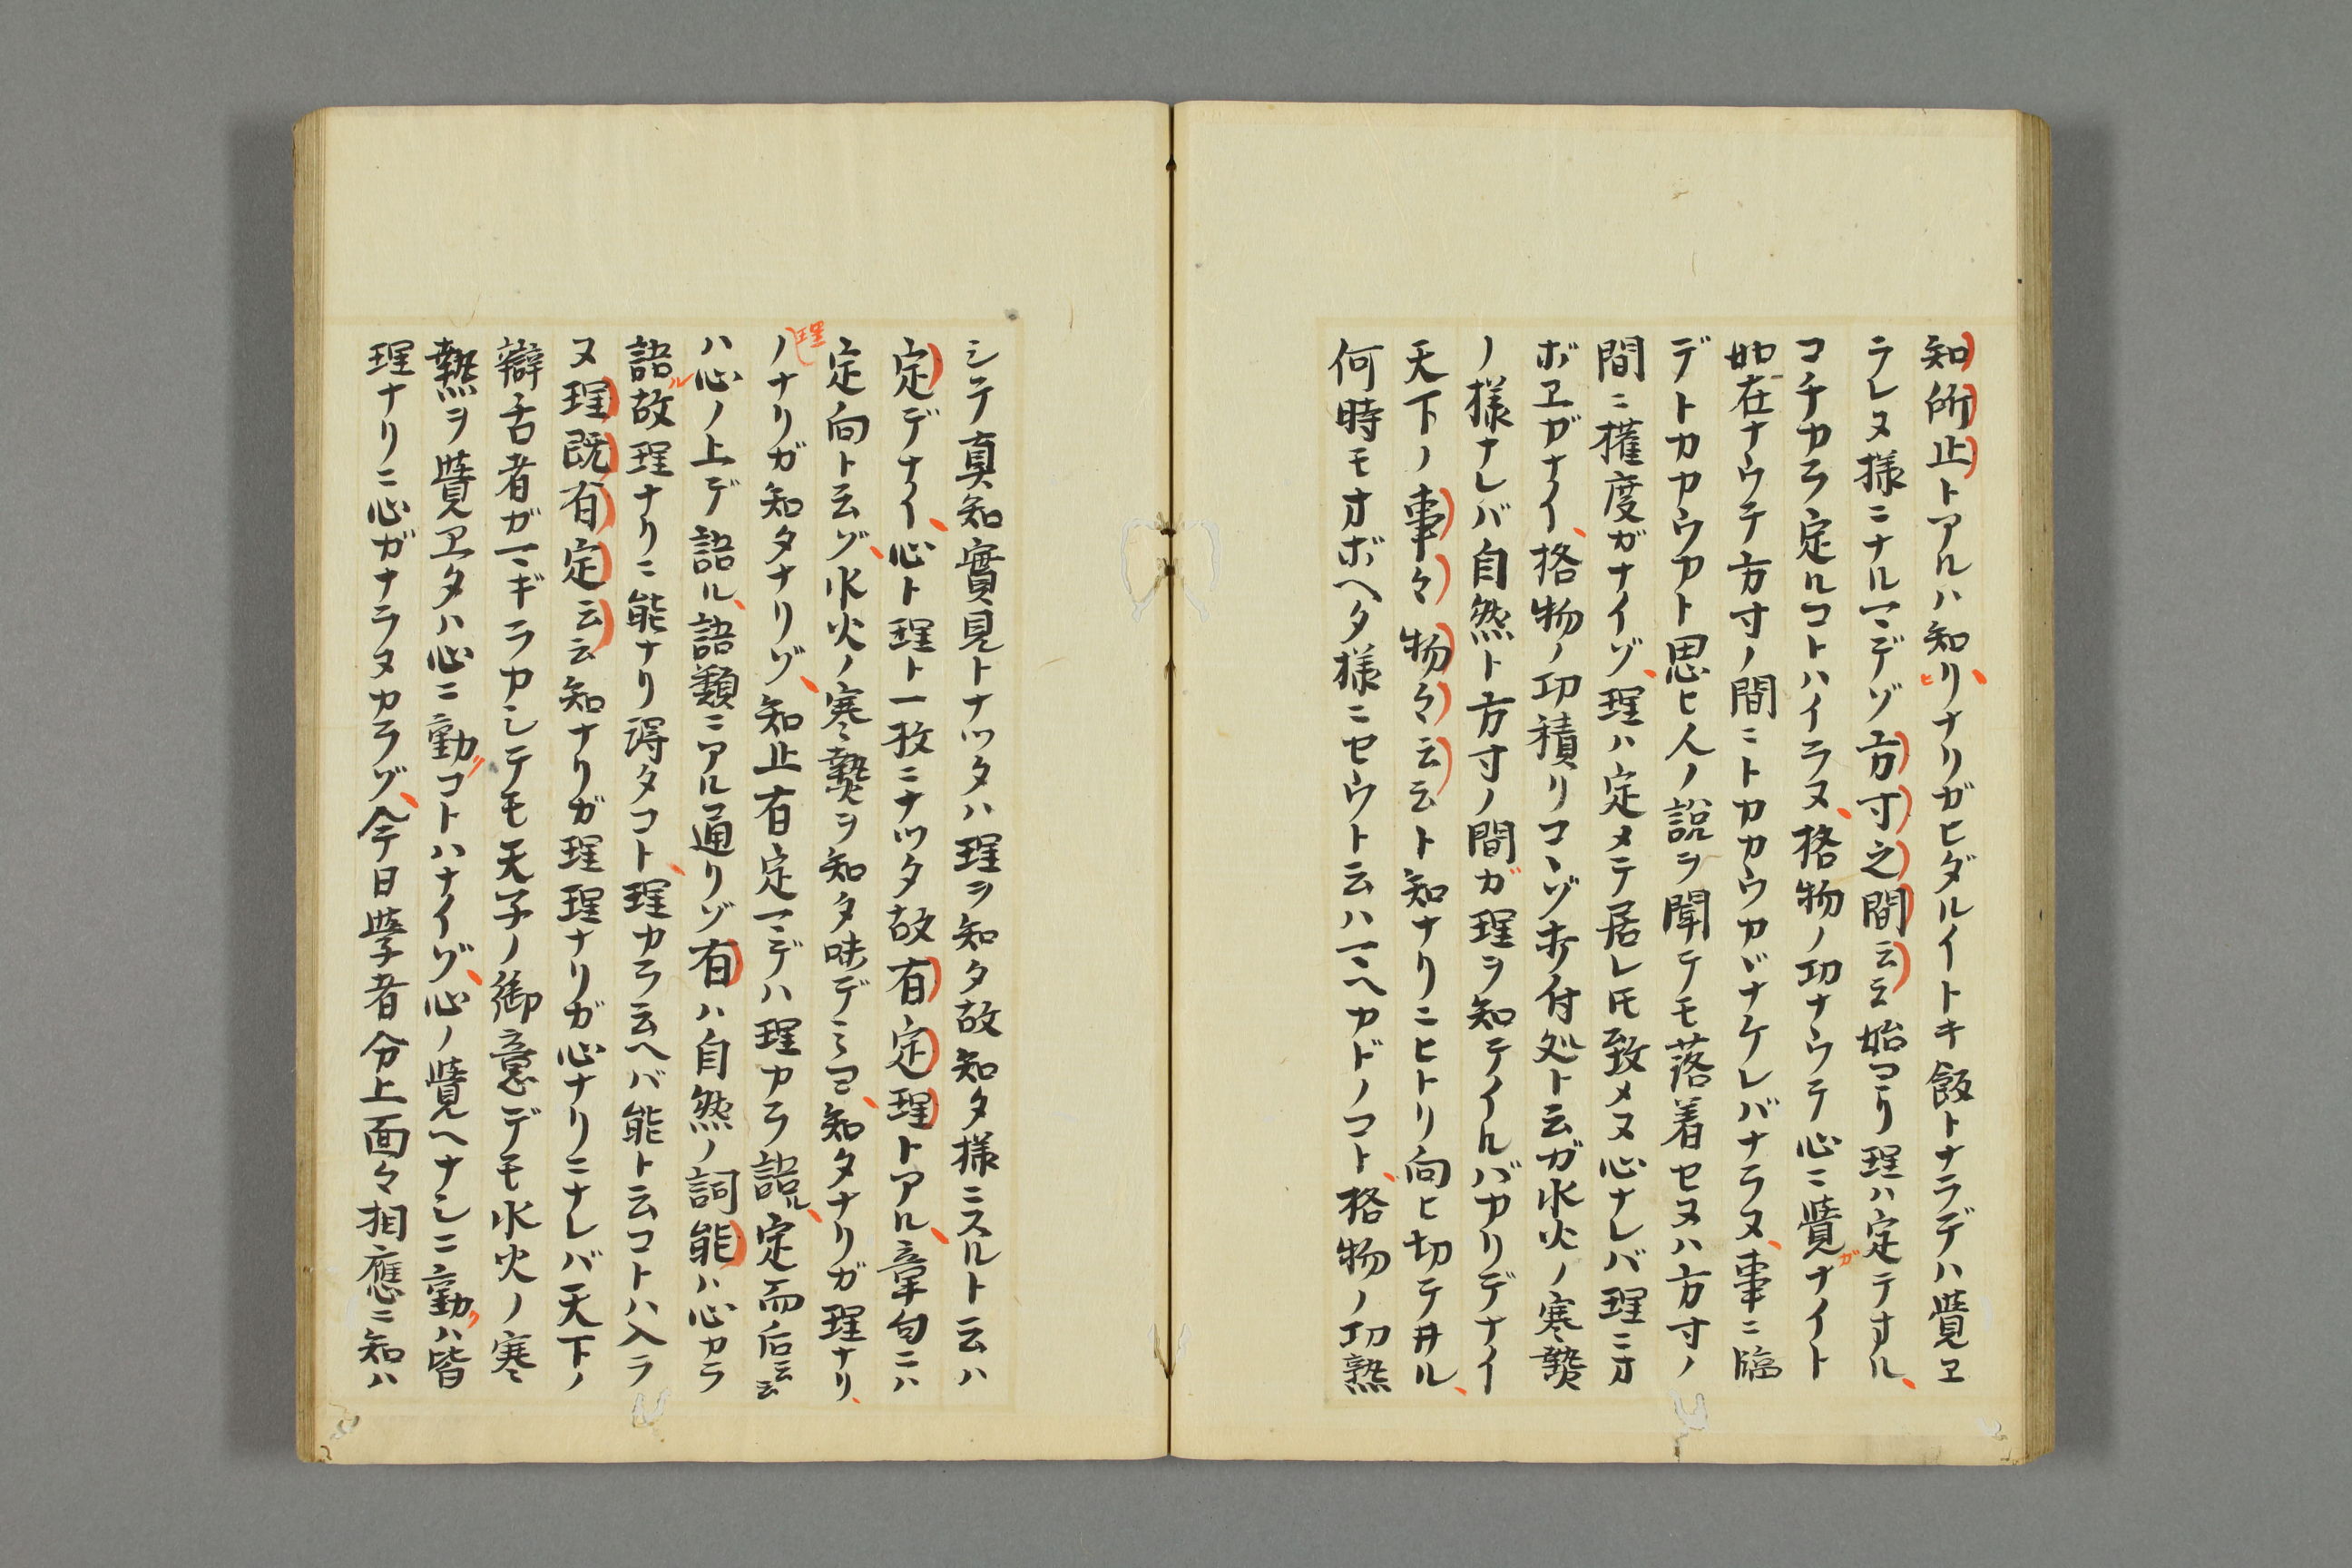 知所止トアルハ知リナリガヒダルイトキ飯トナラデハ覺ヱ
ラレヌ様ニナルマデゾ方寸之間云云始マリ理ハ定テオル
コチカラ定ルコトハイラヌ格物ノ功ナウテ心ニ覺ガナイト
如在ナウテ方寸ノ間ニトカカウカガナケレバナラヌ事ニ臨
デトカカウカト思ヒ人ノ説ヲ聞テモ落着セヌハ方寸ノ
間ニ權度ガナイゾ理ハ定メテ居レ𪜈致メヌ心ナレバ理ニオ
ボヱガナイ格物ノ功積リコヽゾ付処ト云ガ水火ノ寒𤍠
ノ様ナレバ自然ト方寸ノ間ガ理ヲ知テイルバカリデナイ
天下ノ事々物々云云ト知ナリニヒトリ向ヒ切テ井ル
何時モオボヘタ様ニセウト云ハマヘカドノコト格物ノ功熟
シテ真知實見トナツタハ理ヲ知タ故知タ様ニスルト云ハ
定デナイ心ト理ト一枚ニナツタ故有定理トアル章句ニハ
定向ト云ゾ水火ノ寒𤍠ヲ知タ味デミヨ知タナリガ理ナリ
理
ノナリガ知タナリゾ知止有定マデハ理カラ語ル定而后云云
ハ心ノ上デ語ル語類ニアル通リゾ有ハ自然ノ詞能ハ心カラ
語ル故理ナリニ能ナリ得タコト理カラ云ヘバ能ト云コトハ入ラ
ヌ理既有定云云知ナリガ理理ナリガ心ナリニナレバ天下ノ
辯舌者ガマギラカシテモ天子ノ御意デモ水火ノ寒
𤍠ヲ覺ヱタハ心ニ動コトハナイゾ心ノ覺ヘナシニ動ハ皆
理ナリニ心ガナラヌカラゾ今日學者分上面々相應ニ知ハ